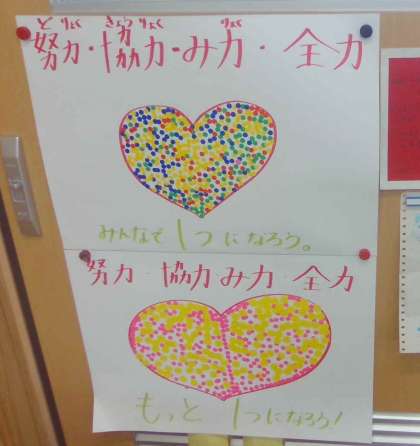 どりょく きょうりょく りょく
努力・協力・み力・全力
みんなで1つになろう。
努力・協力み力・全力
もっと1つになろう!